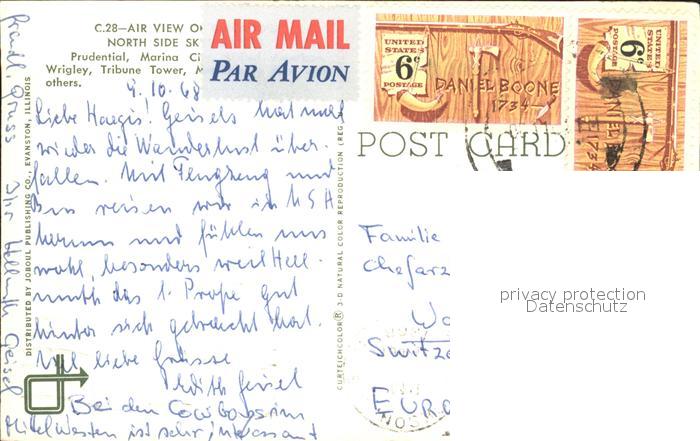 C.28—AIR VIEW O
NORTH SIDE SK
Prudential, Marina Ci
Wrigley, Tribune Tower, M
others.
AIR MAIL
PAR AVION
UNITED STATES
6c
POSTAGE
DANIEL BOONE
1734
UNITED STATES
6c
POSTAGE
DANIEL BOONE
1734
POST CARD
9.10.68
Liebe Haegis! Geisels hat mal
wieder die Wanderlust über-
fallen. Mit Flugzeug und
Bus reisen wir in USA
herum und fühlen uns
wohl, besonders weil Hell-
muth das 1. Prope gut
hinter sich gebracht hat.
Viel liebe Grüsse
Edith Geisel
Bei den Cowboys im
Mittelwesten ist sehr interessant
Hellmuth Geisel
DISTRIBUTED BY JOBOUL PUBLISHING CO., EVANSTON, ILLINOIS
CURTEICHCOLOR ® 3-D NATURAL COLOR REPRODUCTION (REG
Familie
Chefarz
Wo
Switze
EURO
privacy protection
Datenschutz